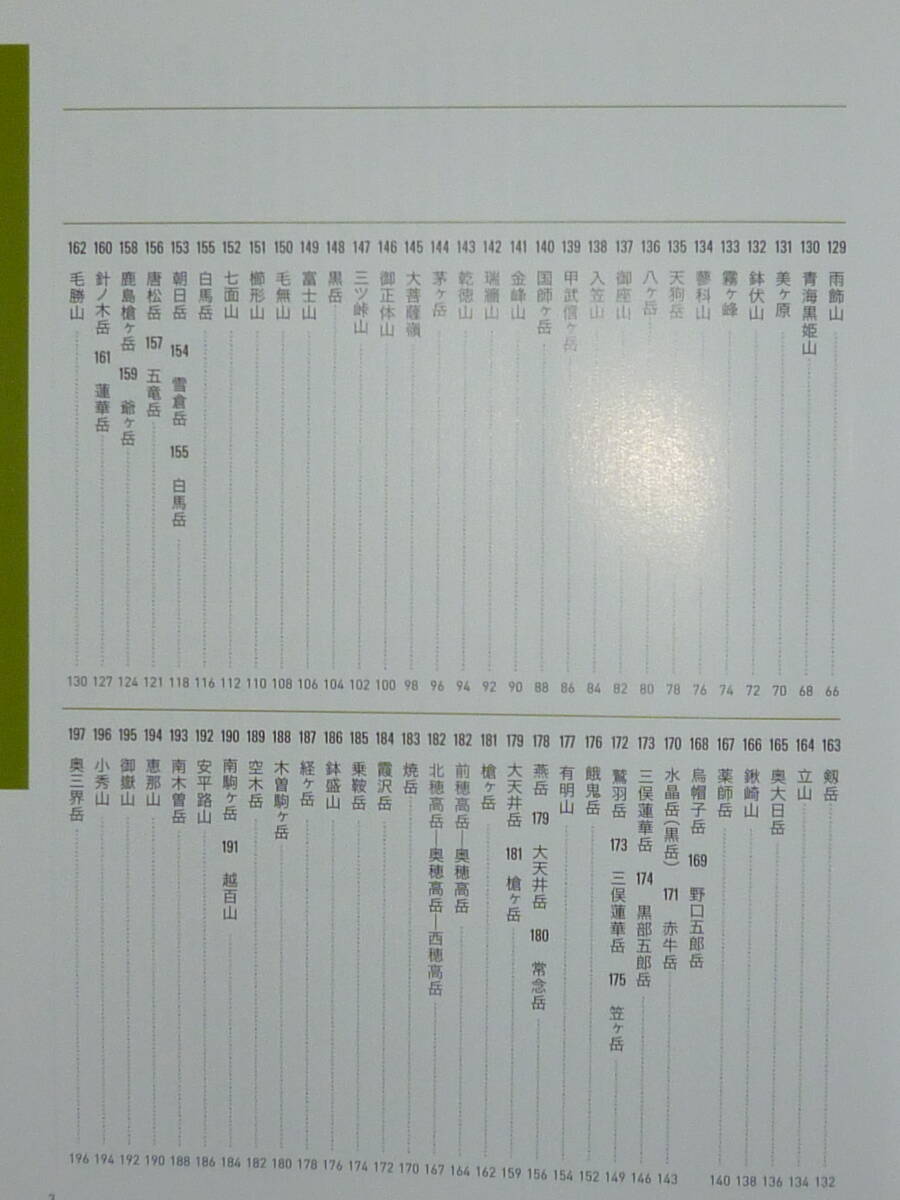 129 雨飾山 66
130 青海黒姫山 68
131 美ヶ原 70
132 鉢伏山 72
133 霧ヶ峰 74
134 蓼科山 76
135 天狗岳 78
136 八ヶ岳 80
137 御座山 82
138 入笠山 84
139 甲武信ヶ岳 86
140 国師ヶ岳 88
141 金峰山 90
142 瑞牆山 92
143 乾徳山 94
144 茅ヶ岳 96
145 大菩薩嶺 98
146 御正体山 100
147 三ツ峠山 102
148 黒岳 104
149 富士山 106
150 毛無山 108
151 櫛形山 110
152 七面山 112
155 白馬岳 116
153 朝日岳 154 雪倉岳 155 白馬岳 118
156 唐松岳 157 五竜岳 121
158 鹿島槍ヶ岳 159 爺ヶ岳 124
160 針ノ木岳 161 蓮華岳 127
162 毛勝山 130
163 剱岳 132
164 立山 134
165 奥大日岳 136
166 鍬崎山 138
167 薬師岳 140
168 烏帽子岳 169 野口五郎岳
170 水晶岳(黒岳) 171 赤牛岳 143
173 三俣蓮華岳 174 黒部五郎岳 146
172 鷲羽岳 173 三俣蓮華岳 175 笠ヶ岳 149
176 餓鬼岳 152
177 有明山 154
178 燕岳 179 大天井岳 180 常念岳 156
179 大天井岳 181 槍ヶ岳 159
181 槍ヶ岳 162
182 前穂高岳―奥穂高岳 164
182 北穂高岳―奥穂高岳―西穂高岳 167
183 焼岳 170
184 霞沢岳 172
185 乗鞍岳 174
186 鉢盛山 176
187 経ヶ岳 178
188 木曽駒ヶ岳 180
189 空木岳 182
190 南駒ヶ岳 191 越百山 184
192 安平路山 186
193 南木曽岳 188
194 恵那山 190
195 御嶽山 192
196 小秀山 194
197 奥三界岳 196
3